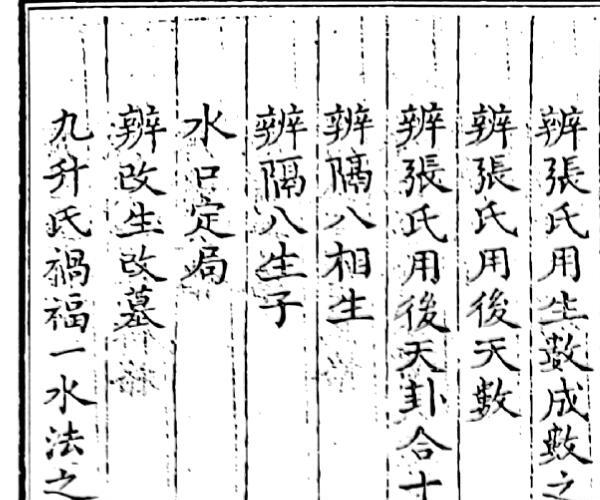 辨張氏用生數成數之
辨張氏用後天數
辨張氏用後天卦合十
辨隔八相生
辨隔八生子
水口定局
辨改生改墓
九升氏禍福一水法之